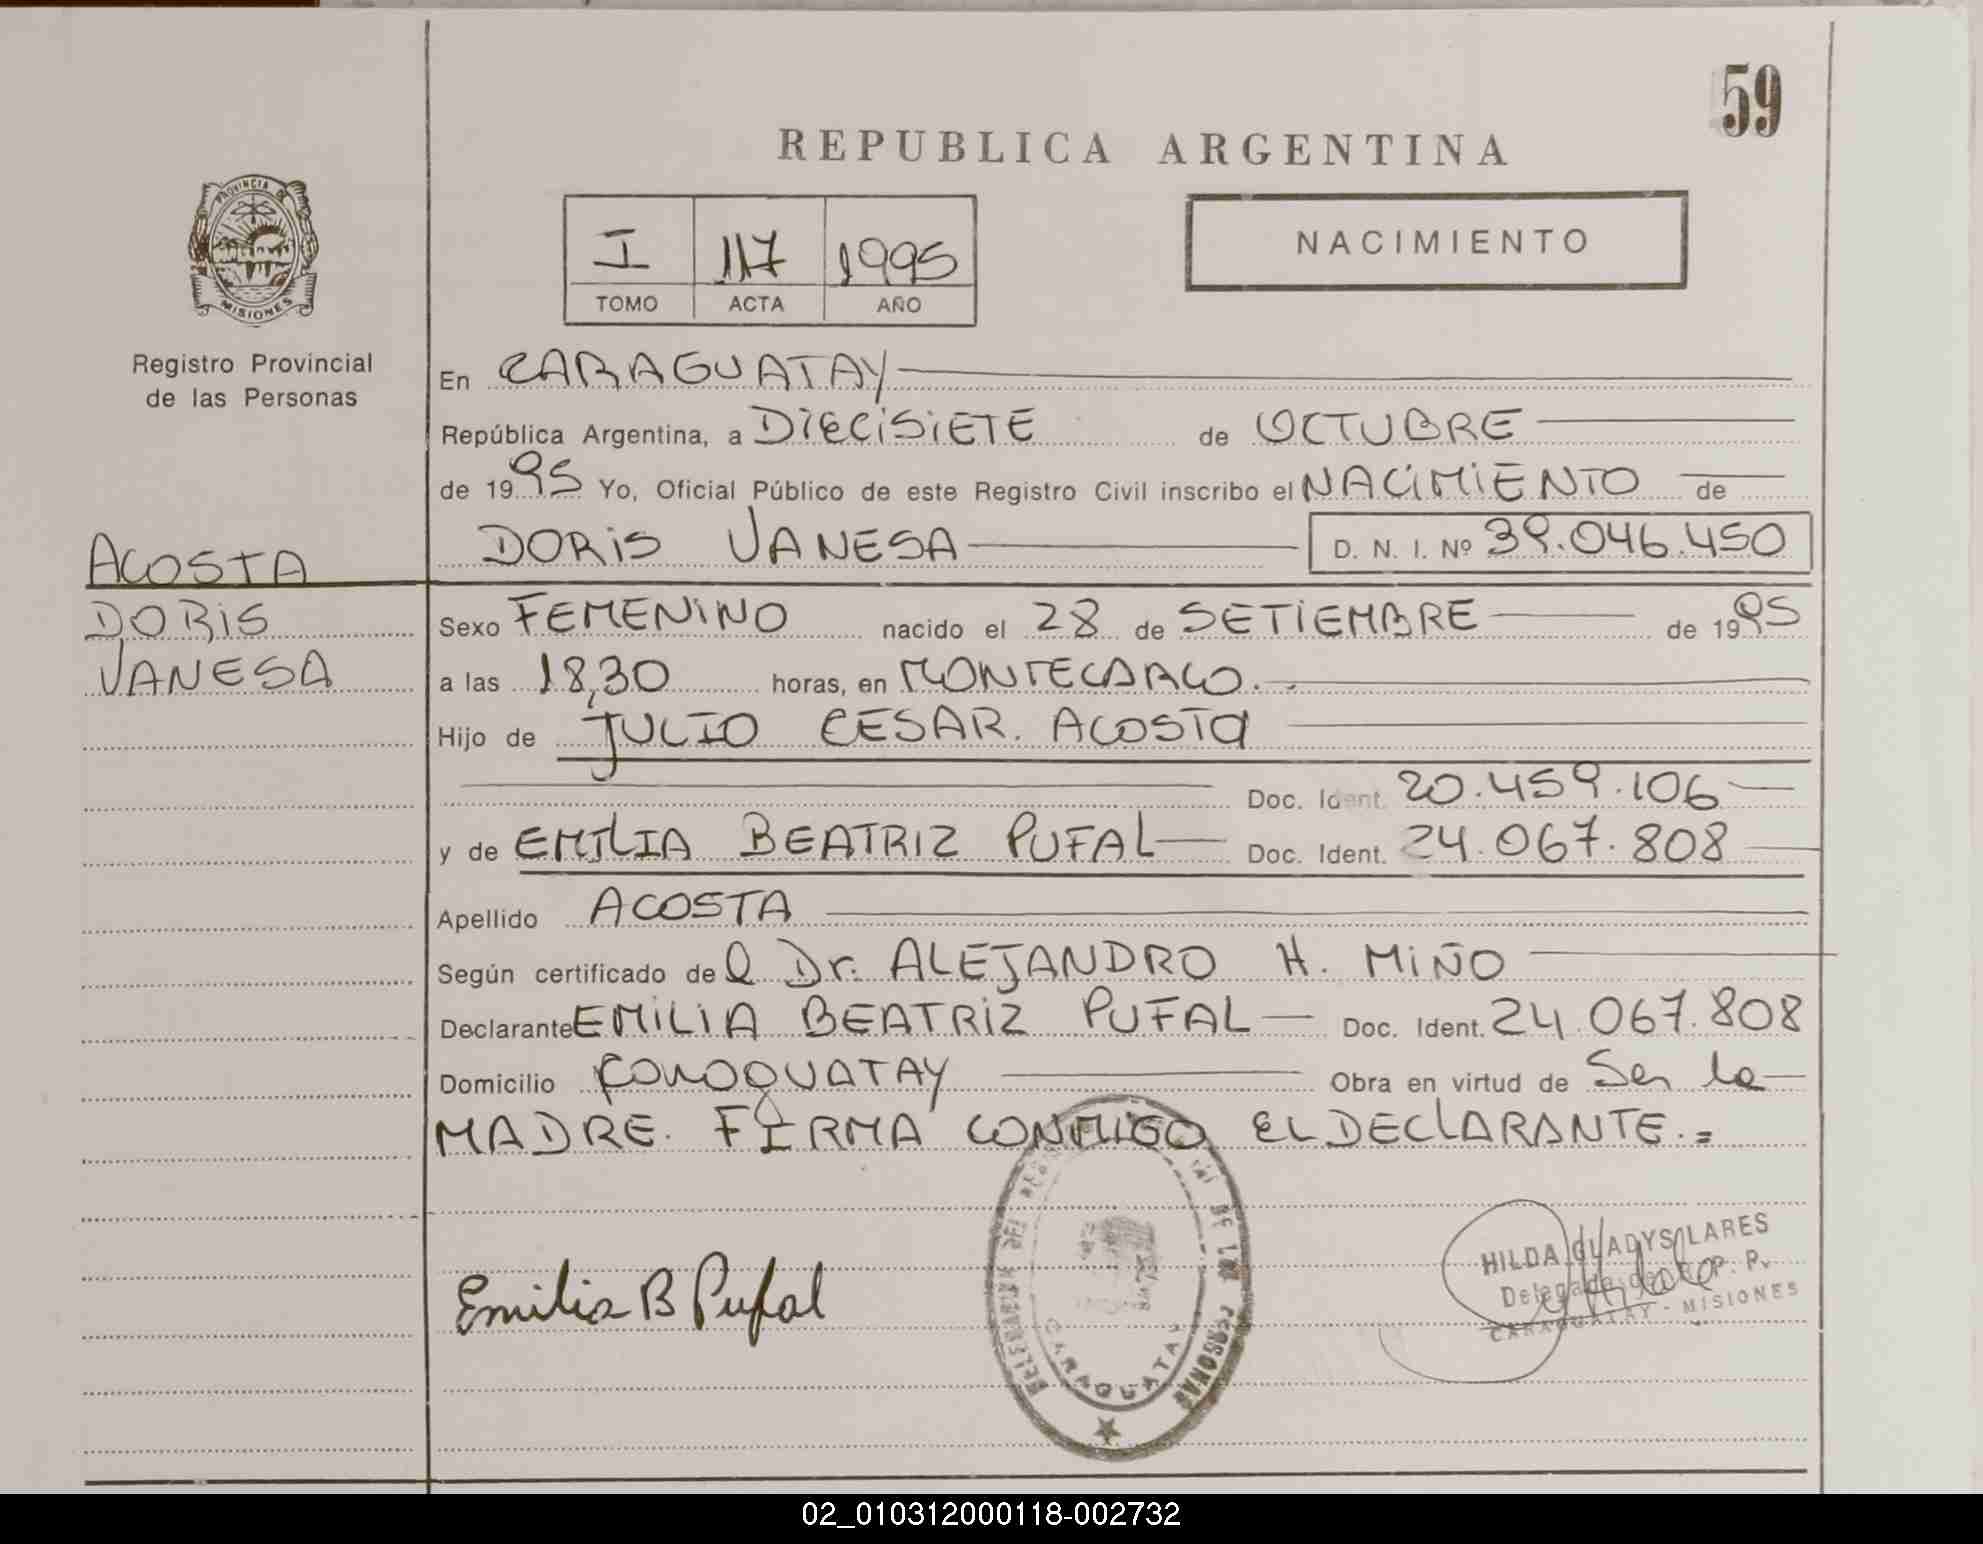 59
REPUBLICA ARGENTINA
I 117 1995
TOMO ACTA AÑO
NACIMIENTO
PROVINCIA DE
MISIONES
Registro Provincial
de las Personas
ACOSTA
DORIS
VANESA
En CARAGUATAY
República Argentina, a DIECISIETE de OCTUBRE
de 1995 Yo, Oficial Público de este Registro Civil inscribo el NACIMIENTO de
DORIS VANESA D. N. I. Nº 39.046.450
Sexo FEMENINO nacido el 28 de SETIEMBRE de 1995
a las 18,30 horas, en MONTECARLO.
Hijo de JULIO CESAR. ACOSTA
Doc. Ident. 20.459.106
y de EMILIA BEATRIZ PUFAL Doc. Ident. 24.067.808
Apellido ACOSTA
Según certificado del Dr. ALEJANDRO H. MIÑO
Declarante EMILIA BEATRIZ PUFAL Doc. Ident. 24.067.808
Domicilio CARAGUATAY Obra en virtud de Ser la
MADRE. FIRMA CONMIGO EL DECLARANTE.=
Emilia B Pufal
DE LAS PERSONAS
CARAGUATAY
HILDA GLADYS LARES
CARAGUATAY - MISIONES
02_010312000118-002732